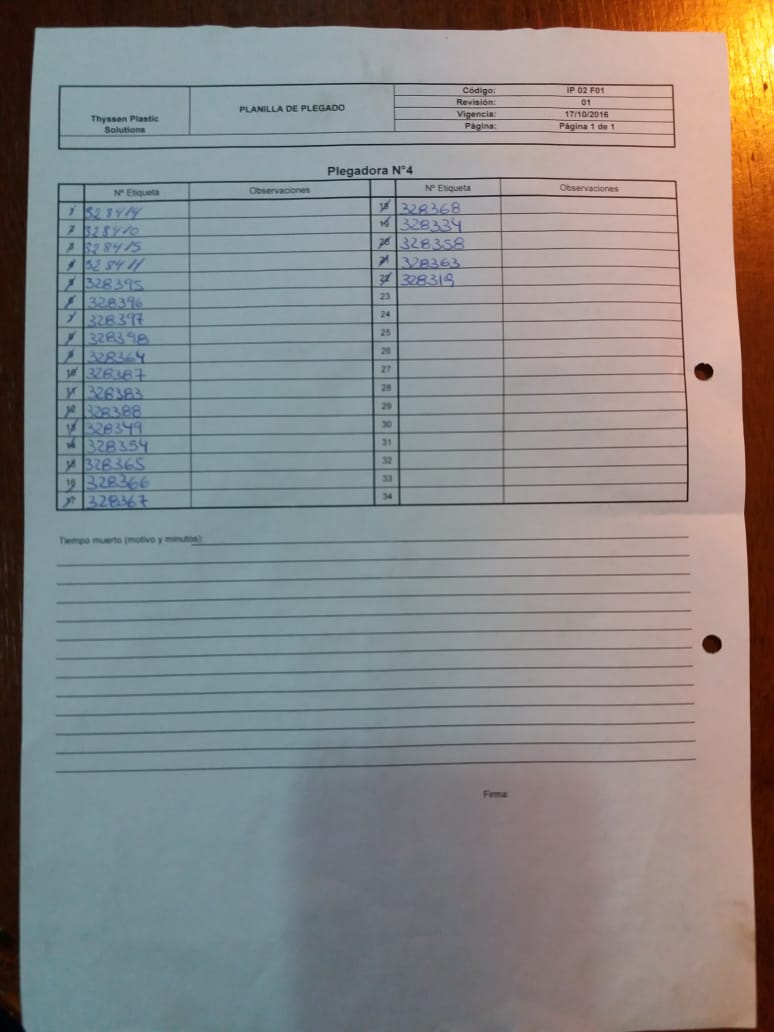 Thyssen Plastic
Solutions
PLANILLA DE PLEGADO
Código: IP 02 F01
Revisión: 01
Vigencia: 17/10/2016
Página: Página 1 de 1
Plegadora N°4
N° Etiqueta Observaciones N° Etiqueta Observaciones
1 328414 18 328368
2 328410 19 328334
3 328415 20 328358
4 328411 21 328363
5 328395 22 328319
6 328396 23
7 328397 24
8 328398 25
9 328364 26
10 328387 27
11 328383 28
12 328388 29
13 328349 30
14 328354 31
15 328365 32
16 328366 33
17 328367 34
Tiempo muerto (motivo y minutos):
Firma